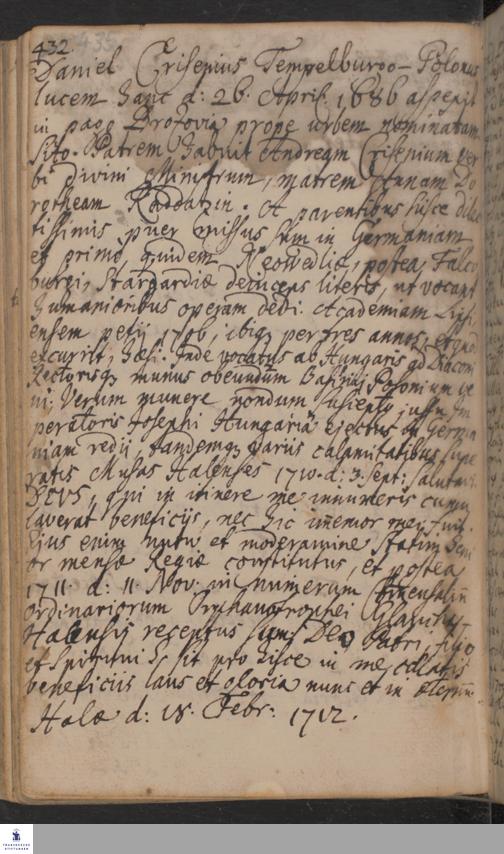 432.
Daniel Crisenius Tempelburgo-Polonus
lucem hanc d: 26. April. 1686 aspexit
in pago Brotovia prope urbem nominatam
sito. Patrem habuit Andream Crisenium ver
bi Divini Ministrum, matrem Annam Do
rotheam Raddazin. A parentibus hisce dilec
tissimis puer missus sum in Germaniam
et primo quidem Neowedliæ, postea Falco
burgi, Stargardiæ deinceps literis, ut vocant
humanioribus operam dedi. Academiam Lipsi
ensem petij 1706, ibiq; per tres annos, et quod
excurrit, hæsi. Inde vocatus ab Hungaris ad Diaconi
Rectorisq; munus obeundum Posonium ve
ni. Verum munere nondum suscepto jussu Im
peratoris Josephi Hungariâ ejectus in Germa
niam redii, tandemq; variis calamitatibus supe
ratis Musas Halenses 1710. d: 3. Sept: salutavi
DEUS, qui in itinere me innumeris cumu
laverat beneficijs, nec hic im̄emor mei fuit.
Ejus enim nutu et moderamine statim Seni
or mensæ Regiæ constitutus, et postea
1711 d: 11 Nov. in numerum
Ordinariorum Orphanotrophei Glauchâ-
Halensis receptus sum. Deo Patri, filio
et Spiritui S. sit pro hisce in me collatis
beneficiis laus et gloria nunc et in æternum.
Halæ d: 18. Febr: 1712.
FRANCKESCHE
STIFTUNGEN